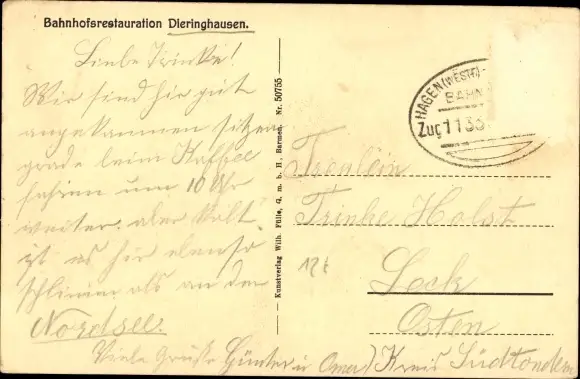 Bahnhofsrestauration Dieringhausen.
Liebe Trinke!
Wir sind hir gut
angekommen sitzen
grade beim Kaffee
fahren um 10 Uhr
weiter. aber kalt
ist es hir ebenso
schlimm als an der
Nordsee.
Viele Grüße Günter u Omer
Kunstverlag Wilh. Fülle, G. m. b. H., Barmen. Nr. 50755
HAGEN (WESTF)-
BAHN
Zug 1133
Fräulein
Trinke Holst
Leck
Osten
Kreis Südtondern
12t